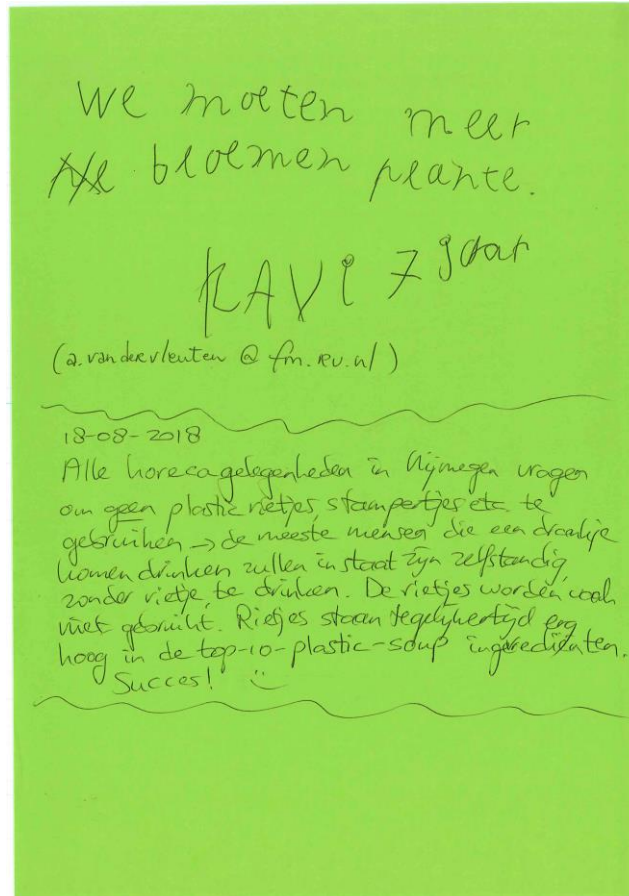 We moeten meer
bloemen plante.
KAVi 7 jaar
(a.vandervleuten @ fm.ru.nl)
18-08-2018
Alle horecagelegenheden in Nijmegen vragen
om geen plastic rietjes, stampertjes etc. te
gebruiken → de meeste mensen die een drankje
komen drinken zullen in staat zijn zelfstandig,
zonder rietje, te drinken. De rietjes worden vaak
niet gebruikt. Rietjes staan tegelijkertijd erg
hoog in de top-10-plastic-soup ingrediënten.
Succes! :)